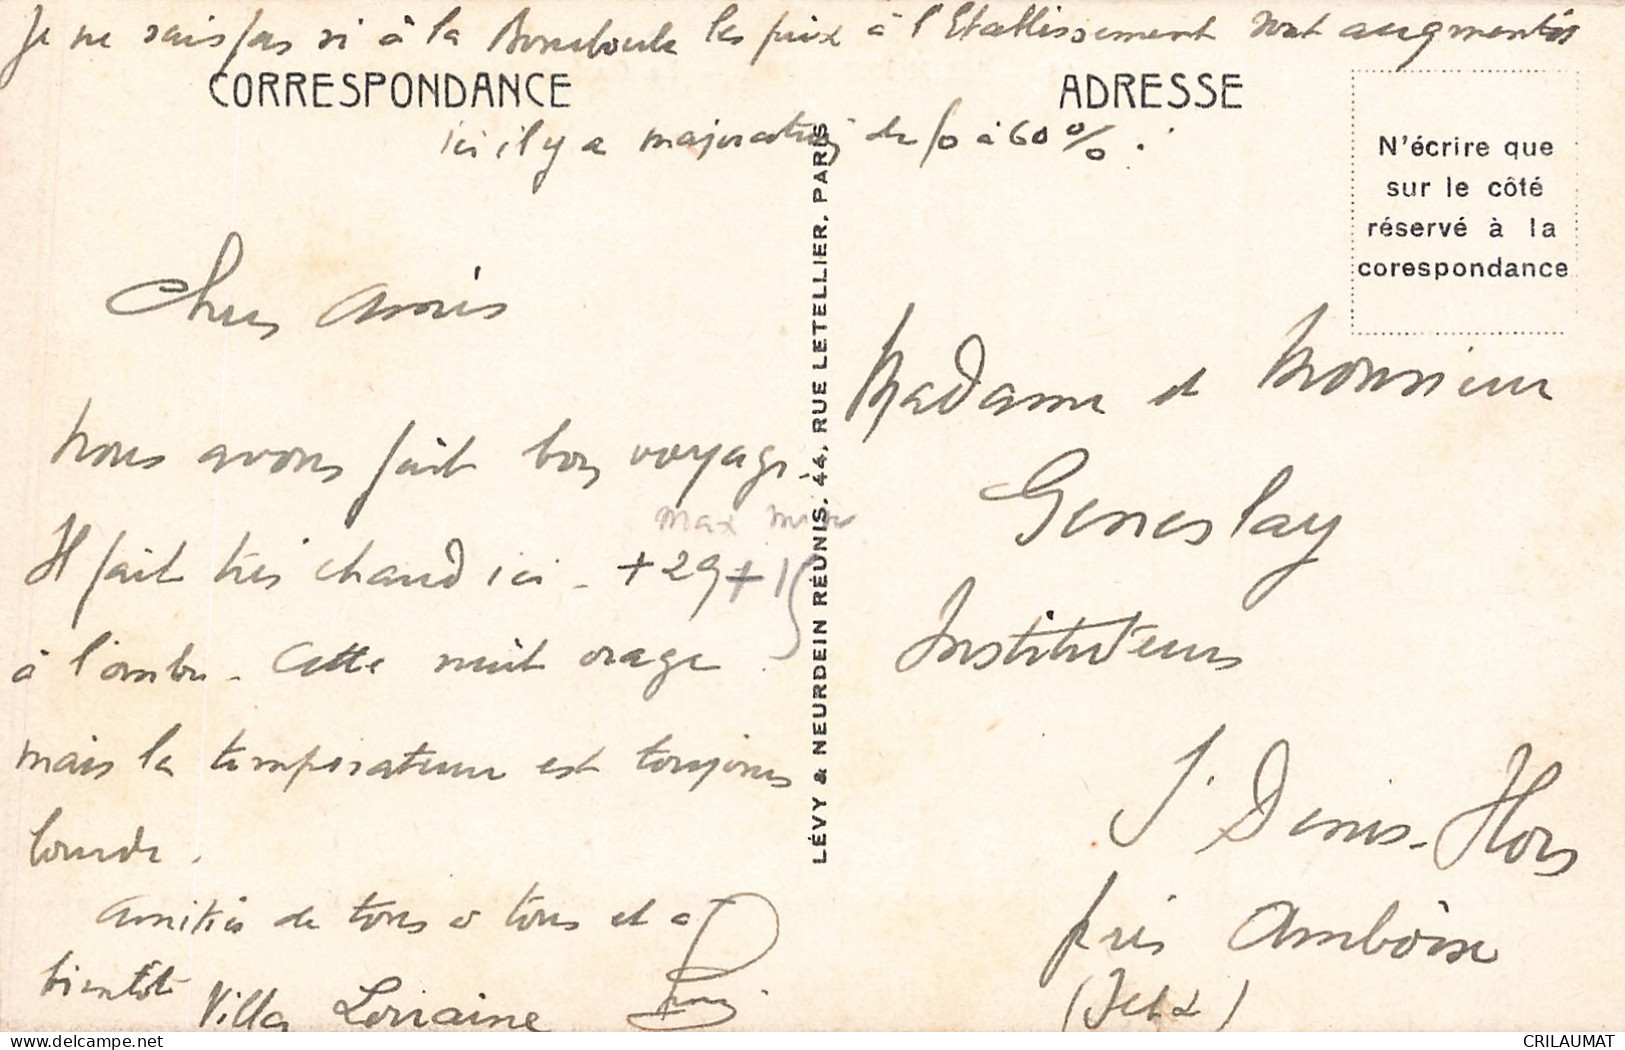 Je ne sais pas si à la Bourboule les prix à l'Etablissement sont augmentés
CORRESPONDANCE
ADRESSE
ici il y a majoration de 50 à 60 % .
N'écrire que
sur le côté
réservé à la
corespondance
LÉVY & NEURDEIN RÉUNIS, 44, RUE LETELLIER, PARIS
Chers amis
Nous avons fait bon voyage.
max min
Il fait très chaud ici - +29 +15
à l'ombre - Cette nuit orage
mais la température est toujours
lourde.
Amitiés de tous à tous et à
bientôt
Villa Lorraine
Madame et Monsieur
Geneslay
Instituteurs
St Denis-Hors
près Amboise
(I et L)
CRILAUMAT